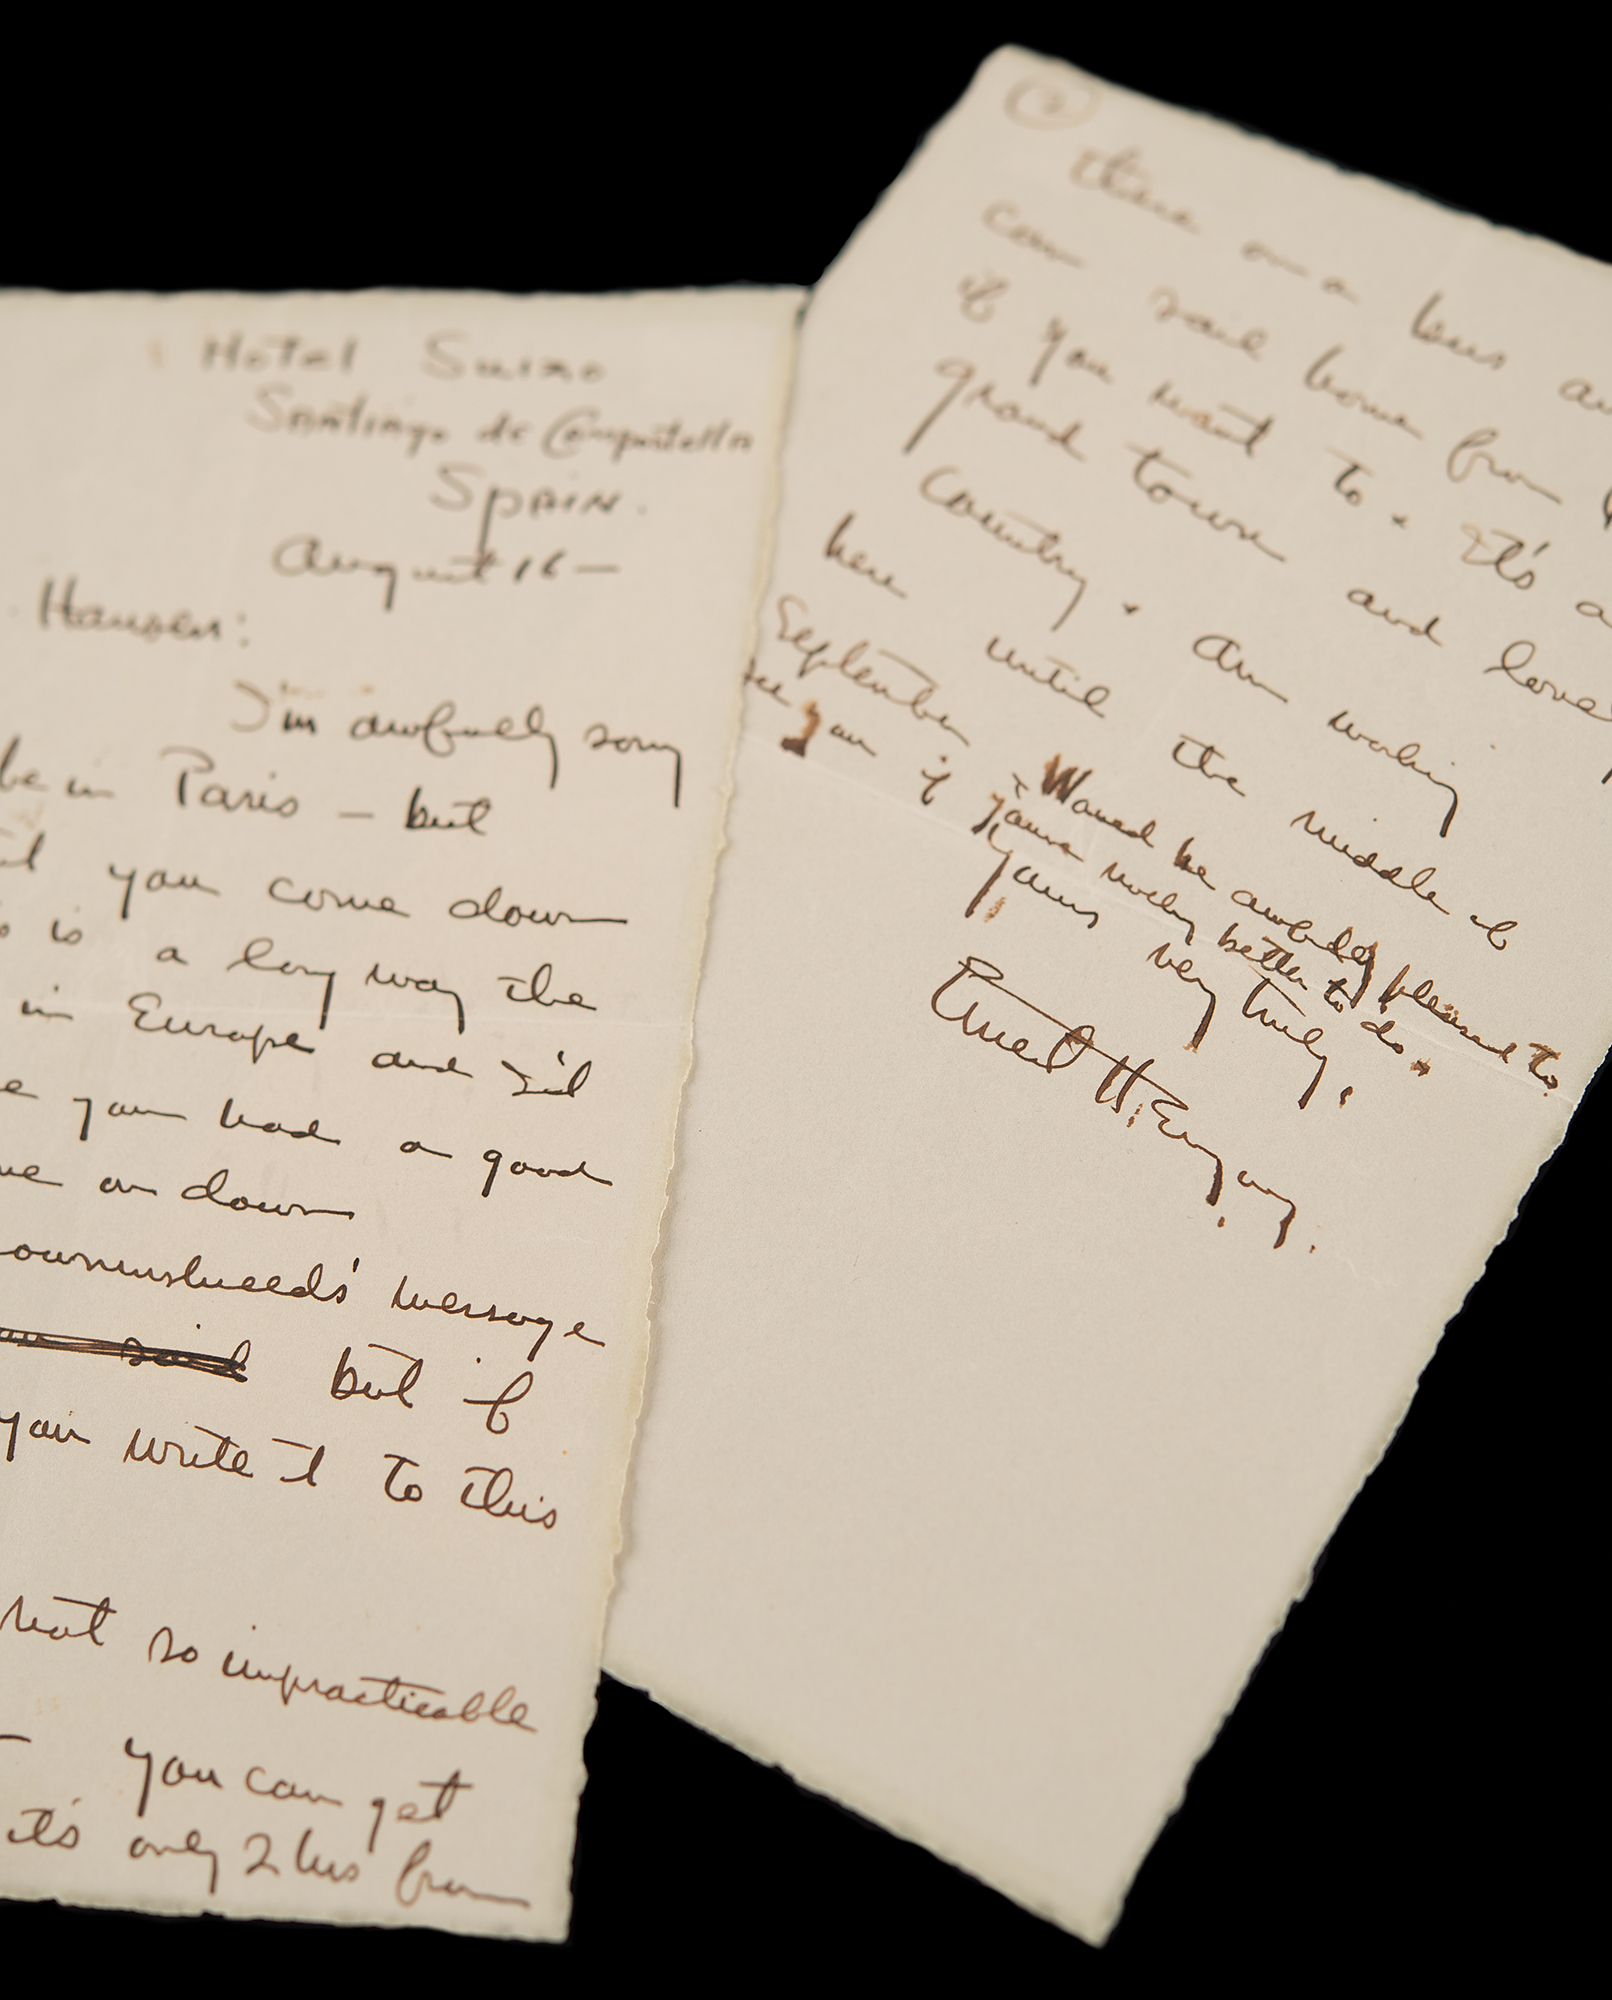 Hotel Suizo
Santiago de Compostella
Spain.
August 16—
Hansen:
I'm awfully sorry
be in Paris — but
you come down
is a long way the
in Europe and I'd
you had a good
on down
message
said but if
you write it to this
not so impracticable
you can get
it's only 2 hrs from
②
there on a bus
can sail home from
if you want to. It's a
grand town and
country. Am working
here until the middle of
September. Would be awfully pleased to
see you if you've nothing better to do.
Yours very truly,
Ernest Hemingway.